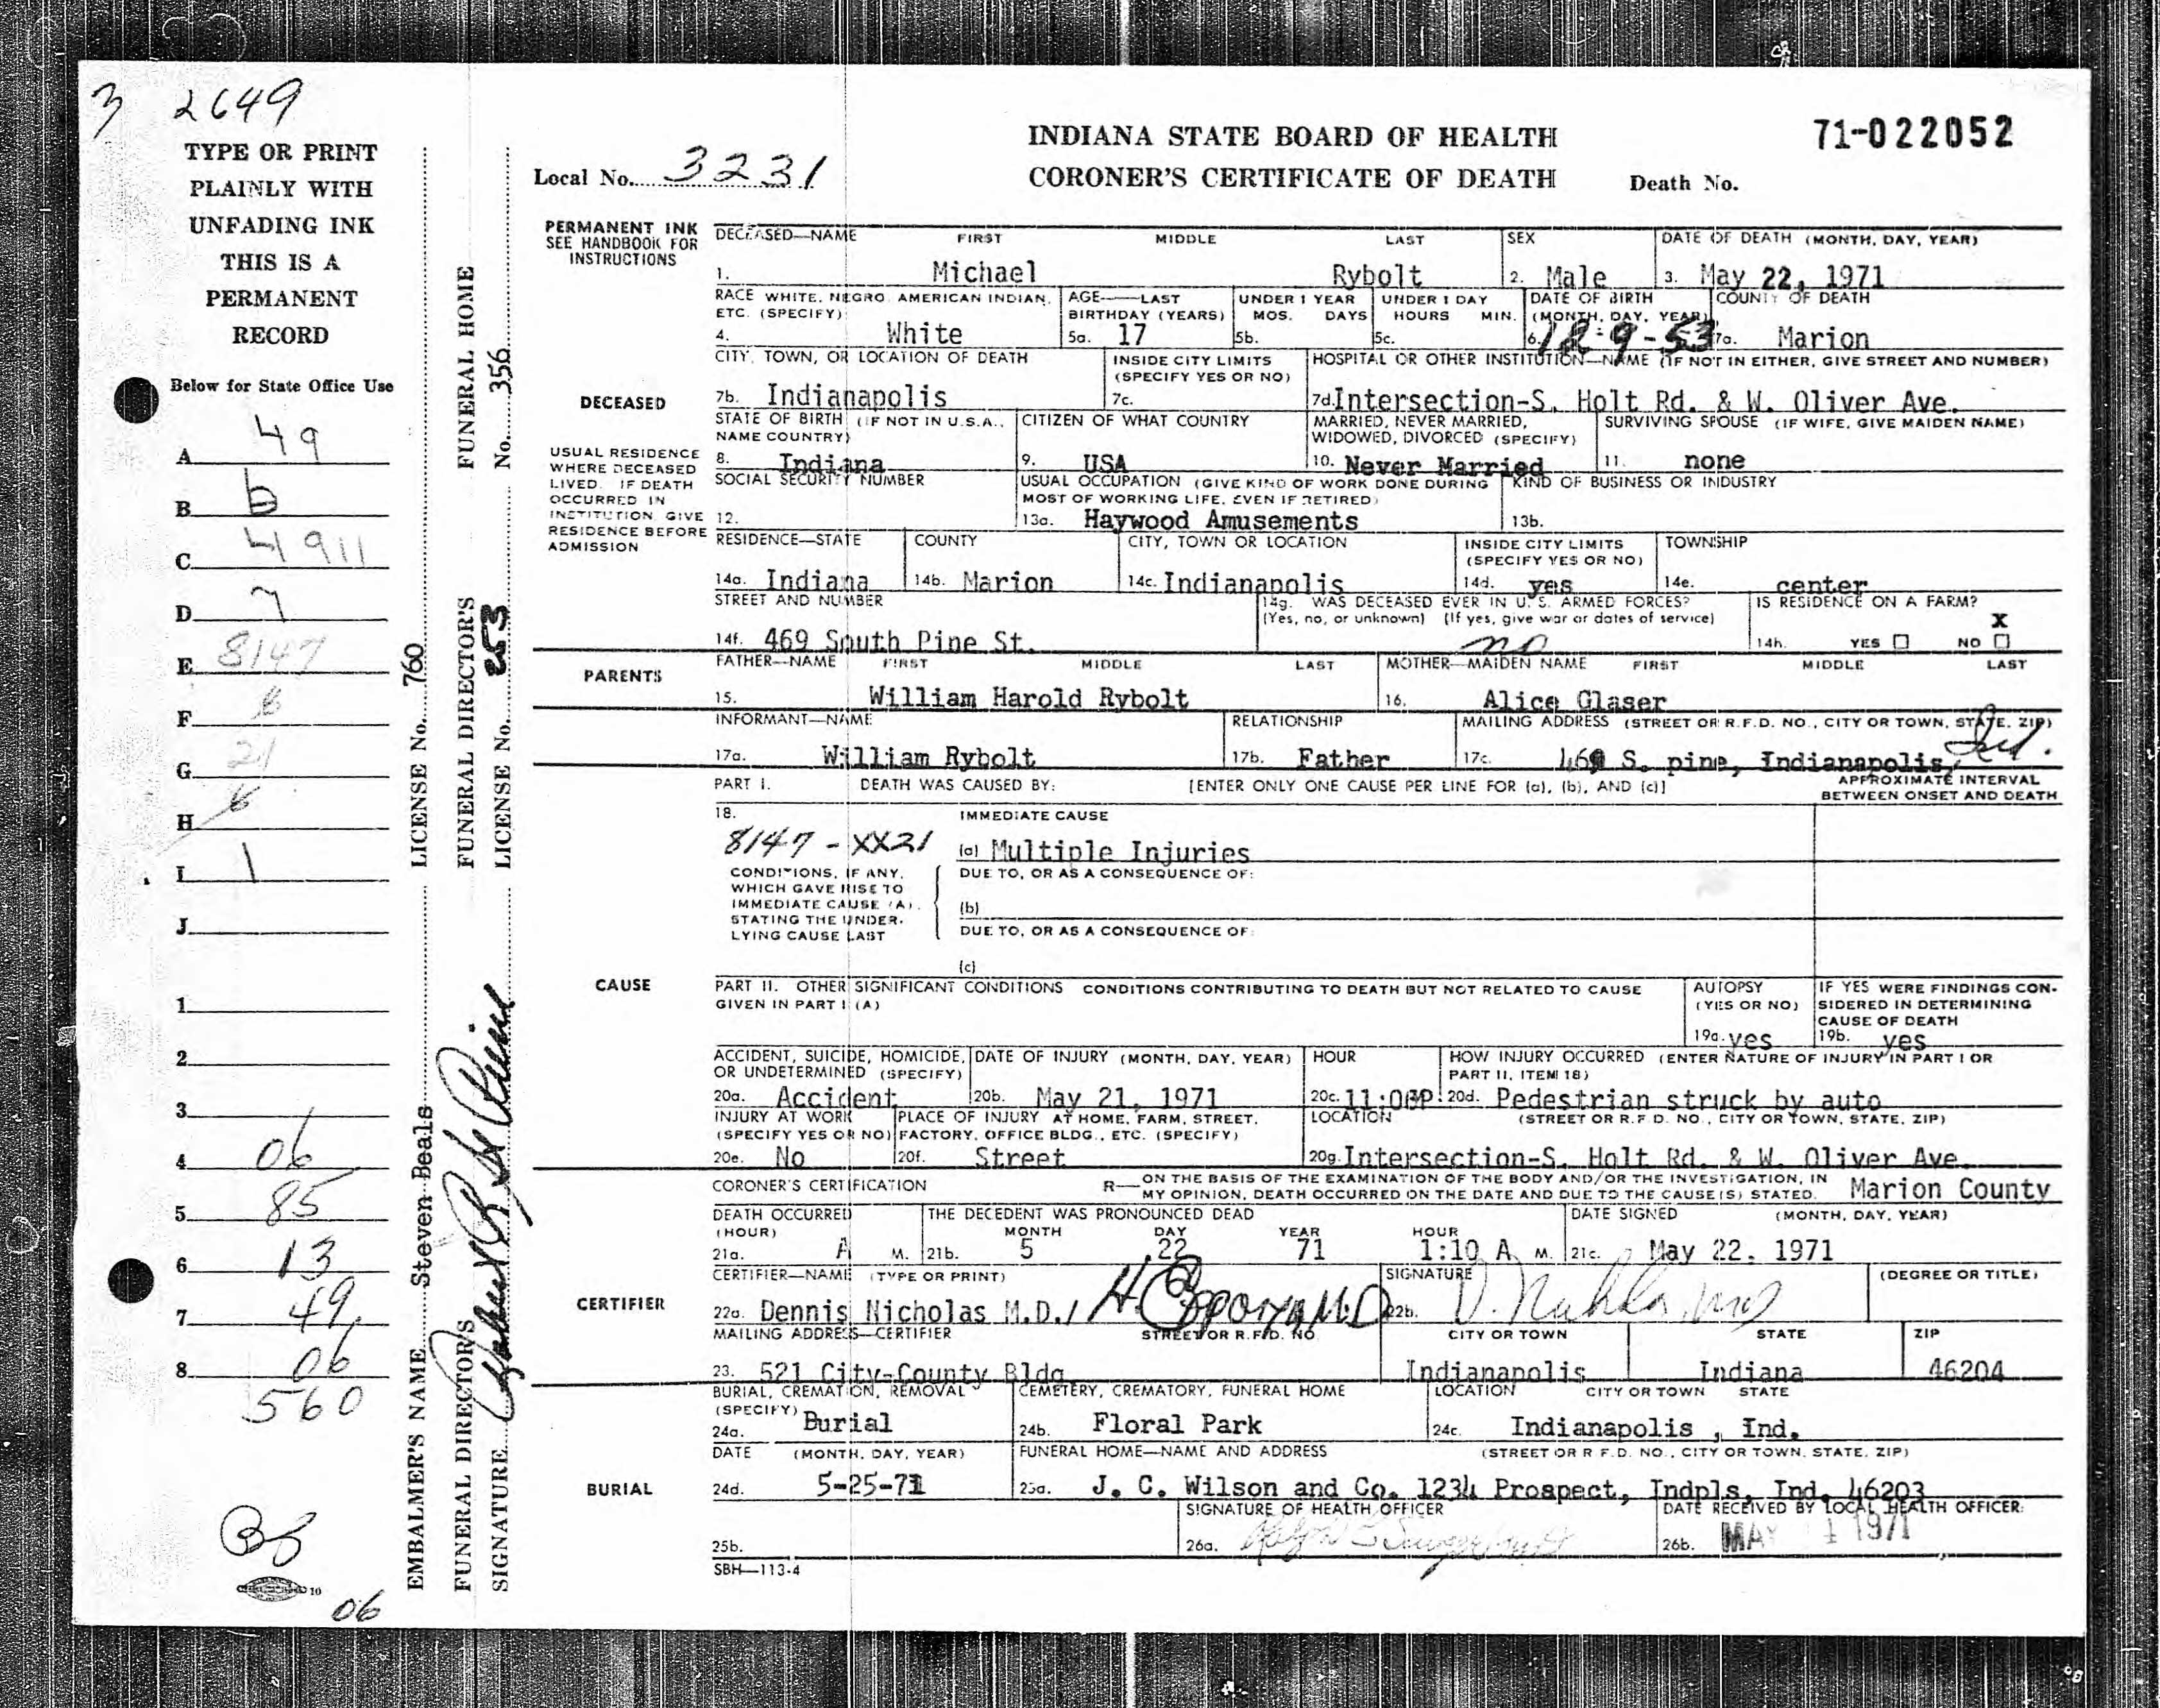 3 2649
TYPE OR PRINT
PLAINLY WITH
UNFADING INK
THIS IS A
PERMANENT
RECORD
Below for State Office Use
A 49
B b
C 41911
D 7
E 8147
F 6
G 21
H 6
I 1
J
1
2
3
4 06
5 85
6 13
7 49
8 06
560
10
06
EMBALMER'S NAME Steven Beals LICENSE No. 760
FUNERAL DIRECTOR'S
SIGNATURE
FUNERAL DIRECTOR'S
LICENSE No. 253
FUNERAL HOME
No. 356
INDIANA STATE BOARD OF HEALTH
CORONER'S CERTIFICATE OF DEATH
71-022052
Local No. 3231
Death No.
PERMANENT INK
SEE HANDBOOK FOR
INSTRUCTIONS
DECEASED—NAME FIRST MIDDLE LAST SEX DATE OF DEATH (MONTH, DAY, YEAR)
1. Michael Rybolt 2. Male 3. May 22, 1971
RACE WHITE, NEGRO, AMERICAN INDIAN, AGE—LAST UNDER 1 YEAR UNDER 1 DAY DATE OF BIRTH COUNTY OF DEATH
ETC. (SPECIFY) BIRTHDAY (YEARS) MOS. DAYS HOURS MIN. (MONTH, DAY, YEAR)
4. White 5a. 17 5b. 5c. 6. 12-9-53 7a. Marion
CITY, TOWN, OR LOCATION OF DEATH INSIDE CITY LIMITS HOSPITAL OR OTHER INSTITUTION—NAME (IF NOT IN EITHER, GIVE STREET AND NUMBER)
(SPECIFY YES OR NO)
DECEASED
7b. Indianapolis 7c. 7d. Intersection-S. Holt Rd. & W. Oliver Ave.
STATE OF BIRTH (IF NOT IN U.S.A., CITIZEN OF WHAT COUNTRY MARRIED, NEVER MARRIED, SURVIVING SPOUSE (IF WIFE, GIVE MAIDEN NAME)
NAME COUNTRY) WIDOWED, DIVORCED (SPECIFY)
8. Indiana 9. USA 10. Never Married 11. none
USUAL RESIDENCE
WHERE DECEASED
LIVED. IF DEATH
OCCURRED IN
INSTITUTION GIVE
RESIDENCE BEFORE
ADMISSION
SOCIAL SECURITY NUMBER USUAL OCCUPATION (GIVE KIND OF WORK DONE DURING KIND OF BUSINESS OR INDUSTRY
MOST OF WORKING LIFE, EVEN IF RETIRED)
12. 13a. Haywood Amusements 13b.
RESIDENCE—STATE COUNTY CITY, TOWN OR LOCATION INSIDE CITY LIMITS TOWNSHIP
(SPECIFY YES OR NO)
14a. Indiana 14b. Marion 14c. Indianapolis 14d. yes 14e. center
STREET AND NUMBER 14g. WAS DECEASED EVER IN U. S. ARMED FORCES? IS RESIDENCE ON A FARM?
(Yes, no, or unknown) (If yes, give war or dates of service) X
14f. 469 South Pine St. no 14h. YES NO
PARENTS
FATHER—NAME FIRST MIDDLE LAST MOTHER—MAIDEN NAME FIRST MIDDLE LAST
15. William Harold Rybolt 16. Alice Glaser
INFORMANT—NAME RELATIONSHIP MAILING ADDRESS (STREET OR R.F.D. NO., CITY OR TOWN, STATE, ZIP)
17a. William Rybolt 17b. Father 17c. 469 S. pine, Indianapolis, Ind.
PART I. DEATH WAS CAUSED BY: [ENTER ONLY ONE CAUSE PER LINE FOR (a), (b), AND (c)] APPROXIMATE INTERVAL
BETWEEN ONSET AND DEATH
18. IMMEDIATE CAUSE
8147 - XX21 (a) Multiple Injuries
CONDITIONS, IF ANY,
WHICH GAVE RISE TO
IMMEDIATE CAUSE (A),
STATING THE UNDER-
LYING CAUSE LAST
DUE TO, OR AS A CONSEQUENCE OF:
(b)
DUE TO, OR AS A CONSEQUENCE OF:
(c)
CAUSE
PART II. OTHER SIGNIFICANT CONDITIONS CONDITIONS CONTRIBUTING TO DEATH BUT NOT RELATED TO CAUSE
GIVEN IN PART I (A)
AUTOPSY
(YES OR NO)
19a. yes
IF YES WERE FINDINGS CON-
SIDERED IN DETERMINING
CAUSE OF DEATH
19b. yes
ACCIDENT, SUICIDE, HOMICIDE, DATE OF INJURY (MONTH, DAY, YEAR) HOUR HOW INJURY OCCURRED (ENTER NATURE OF INJURY IN PART I OR
OR UNDETERMINED (SPECIFY) PART II, ITEM 18)
20a. Accident 20b. May 21, 1971 20c. 11:00P 20d. Pedestrian struck by auto
INJURY AT WORK PLACE OF INJURY AT HOME, FARM, STREET, LOCATION (STREET OR R.F.D. NO., CITY OR TOWN, STATE, ZIP)
(SPECIFY YES OR NO) FACTORY, OFFICE BLDG., ETC. (SPECIFY)
20e. No 20f. Street 20g. Intersection-S. Holt Rd. & W. Oliver Ave.
CORONER'S CERTIFICATION R—ON THE BASIS OF THE EXAMINATION OF THE BODY AND/OR THE INVESTIGATION, IN
MY OPINION, DEATH OCCURRED ON THE DATE AND DUE TO THE CAUSE(S) STATED. Marion County
DEATH OCCURRED THE DECEDENT WAS PRONOUNCED DEAD DATE SIGNED (MONTH, DAY, YEAR)
(HOUR) MONTH DAY YEAR HOUR
21a. A M. 21b. 5 22 71 1:10 A M. 21c. May 22, 1971
CERTIFIER
CERTIFIER—NAME (TYPE OR PRINT) SIGNATURE (DEGREE OR TITLE)
22a. Dennis Nicholas M.D./ 22b.
MAILING ADDRESS—CERTIFIER STREET OR R.F.D. NO. CITY OR TOWN STATE ZIP
23. 521 City-County Bldg Indianapolis Indiana 46204
BURIAL, CREMATION, REMOVAL CEMETERY, CREMATORY, FUNERAL HOME LOCATION CITY OR TOWN STATE
(SPECIFY)
24a. Burial 24b. Floral Park 24c. Indianapolis , Ind.
DATE (MONTH, DAY, YEAR) FUNERAL HOME—NAME AND ADDRESS (STREET OR R.F.D. NO., CITY OR TOWN, STATE, ZIP)
BURIAL
24d. 5-25-71 25a. J. C. Wilson and Co. 1234 Prospect, Indpls, Ind. 46203
SIGNATURE OF HEALTH OFFICER DATE RECEIVED BY LOCAL HEALTH OFFICER:
25b. 26a. 26b. MAY 1971
SBH—113-4